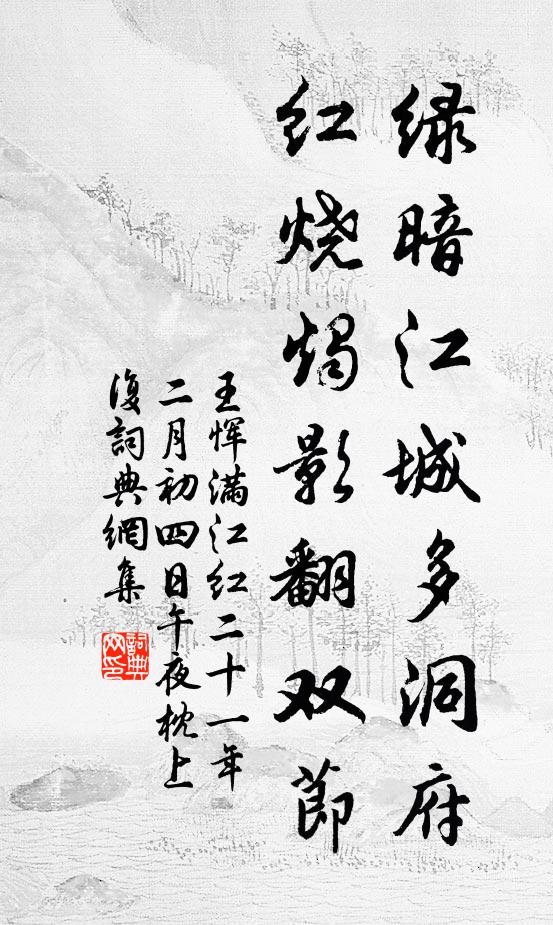 绿暗江城多洞府
红烧烛影翻双节
王恽满江红二十一年
二月初四日午夜枕上
復詞典網集
詞典